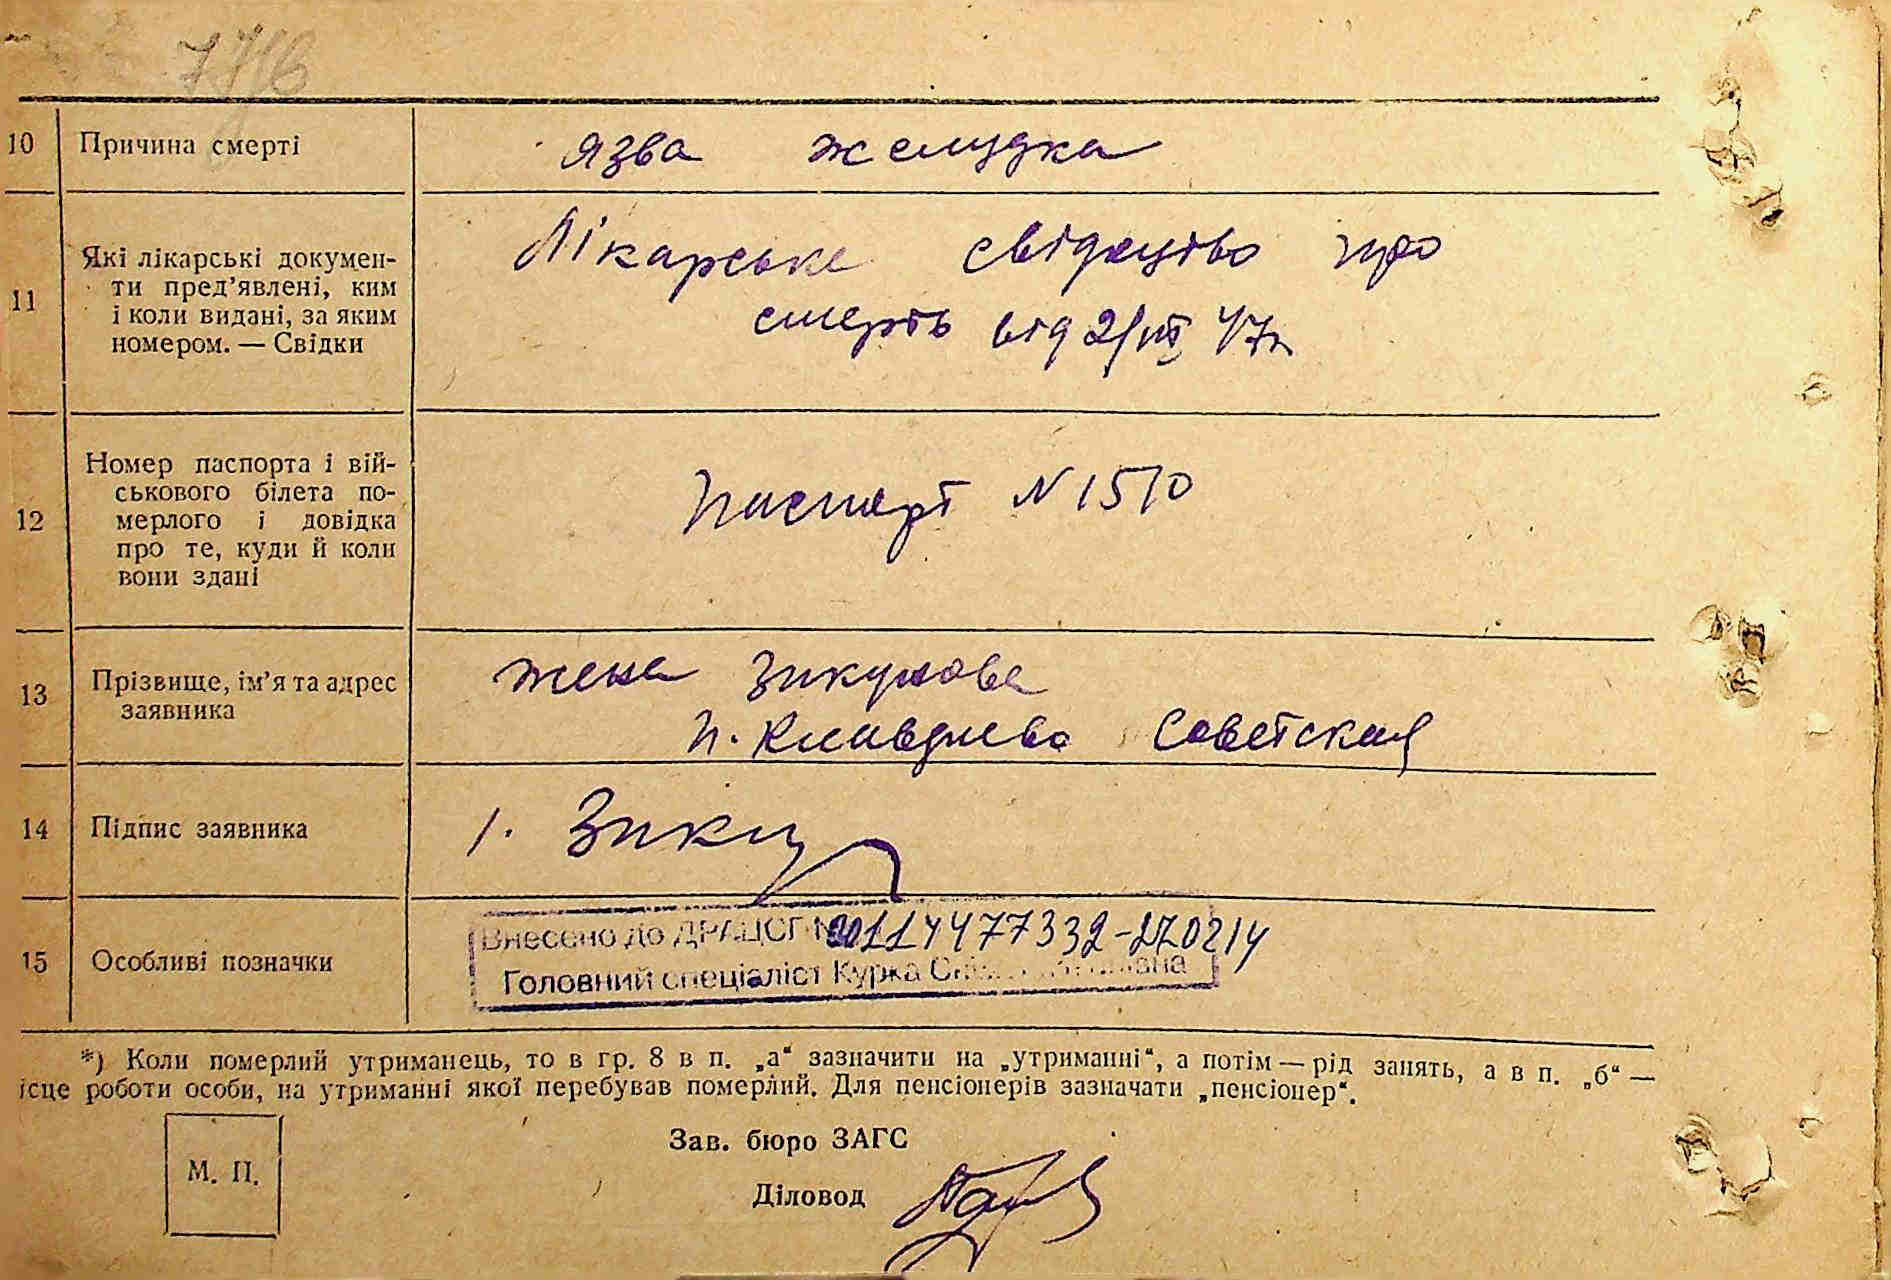 10 Причина смерті язва желудка
11 Які лікарські докумен-
ти пред’явлені, ким
і коли видані, за яким
номером. — Свідки
Лікарське свідоцтво про
смерть від 2/VIII 47г
12 Номер паспорта і вій-
ськового білета по-
мерлого і довідка
про те, куди й коли
вони здані
Паспорт N 1510
13 Прізвище, ім’я та адрес
заявника
жена Зикунова
п. Клавдиево Советская
14 Підпис заявника 1. Зику
15 Особливі позначки
Внесено до ДРАЦСГ № 00114477332-270214
Головний спеціаліст Курка
*) Коли померлий утриманець, то в гр. 8 в п. „а“ зазначити на „утриманні“, а потім — рід занять, а в п. „б“ —
ісце роботи особи, на утриманні якої перебував померлий. Для пенсіонерів зазначати „пенсіонер“.
М. П.
Зав. бюро ЗАГС
Діловод